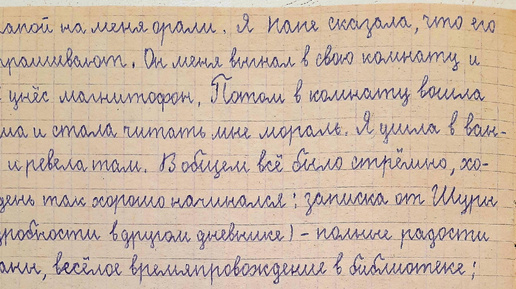 папой на меня орали. Я папе сказала, что его
прашивают. Он меня выгнал в свою комнату и
унёс магнитофон. Потом в комнату вошла
ма и стала читать мне мораль. Я ушла в ван-
и ревела там. В общем всё было стрёмно, хо-
день так хорошо начинался: записка от Шуры
дробности в другом дневнике) - полные радости
аны, весёлое времяпровождение в библиотеке;